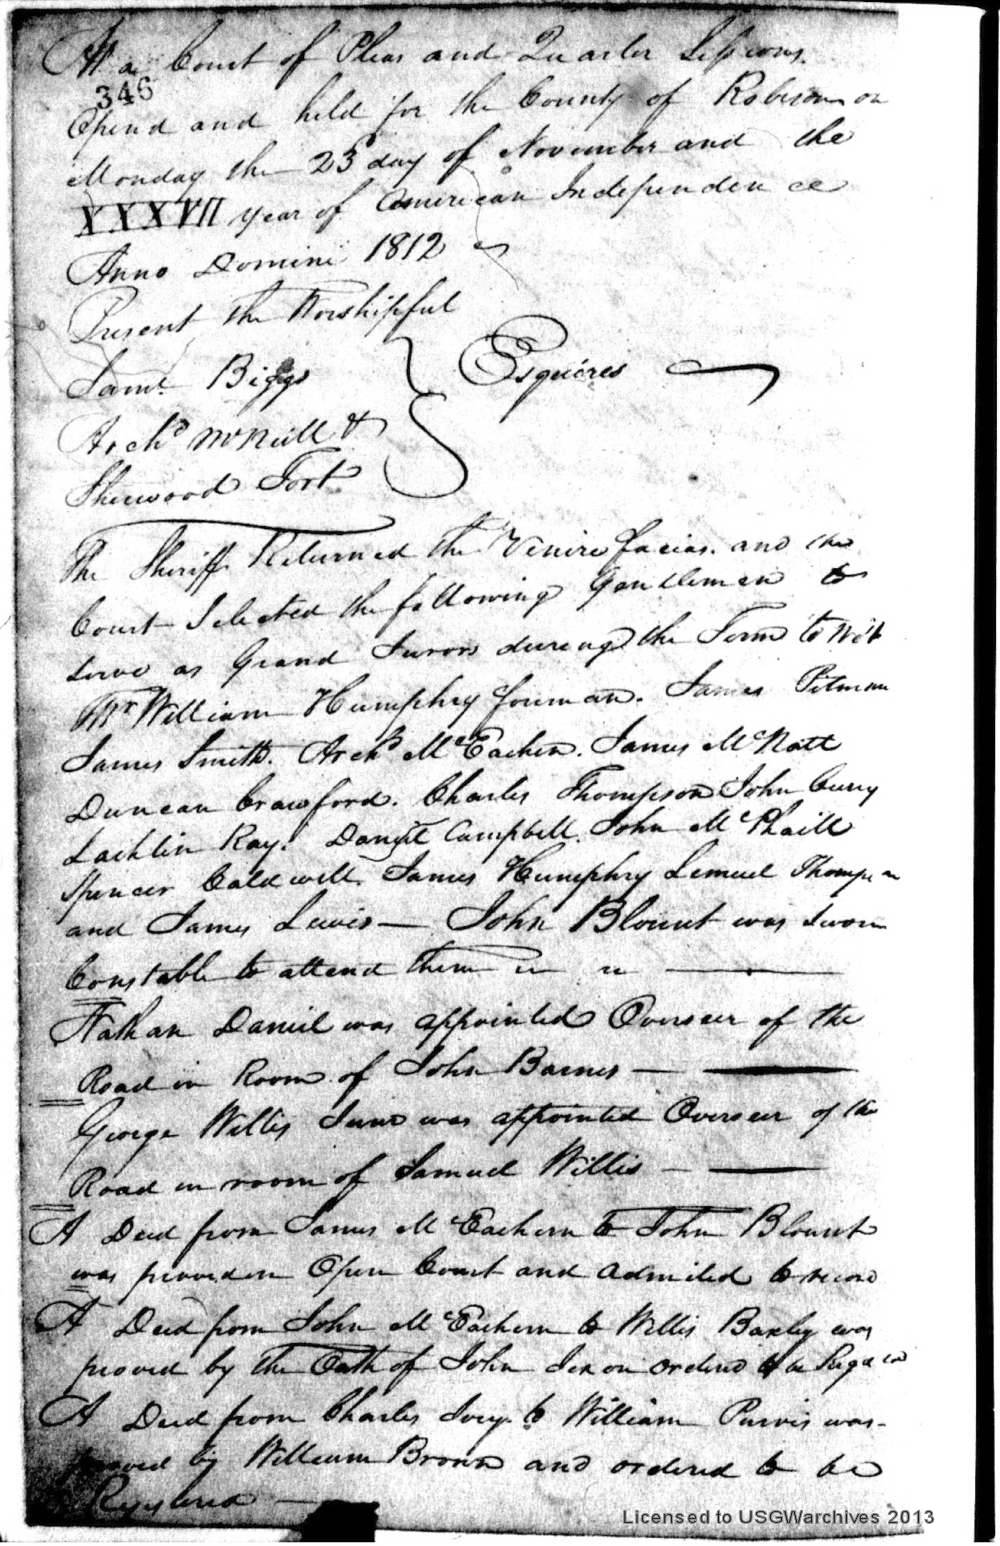 At a Court of Pleas and Quarter Sessions.
346
Opend and held for the County of Robeson on
Monday the 23d day of November and the
XXXVII year of American Independence
Anno Domini 1812
Present the Worshipful
Saml Biggs
Esquires
Archd McNeill &
Sherwood Fort
The Sheriff Returned the Venire facias. and the
Court Selected the following Gentlemen to
serve as Grand Jurors dureing the Term to Wit
Mr William Humphry foreman. James Pitman
James Smith. Archd McEachern. James McNatt
Duncan Crawford. Charles Thompson John Curry
Lachlin Ray. Daniel Campbell. John McPhaill
Spencer Caldwell. James Humphry Lemuel Thompson
and James Lewis — John Blount was sworn
Constable to attend them
Nathan Daniel was appointed Overseer of the
Road in Room of John Barnes —
George Willis Junr was appointed Overseer of the
Road in room of Samuel Willis —
A Deed from James McEachern to John Blount
was proved in Open Court and admited to record
A Deed from John McEachern to Willis Baxley was
proved by the Oath of John ordered to be
A Deed from Charles Ivey to William Purvis was
proved by William Brown and ordered to be
Registered —
Licensed to USGWarchives 2013